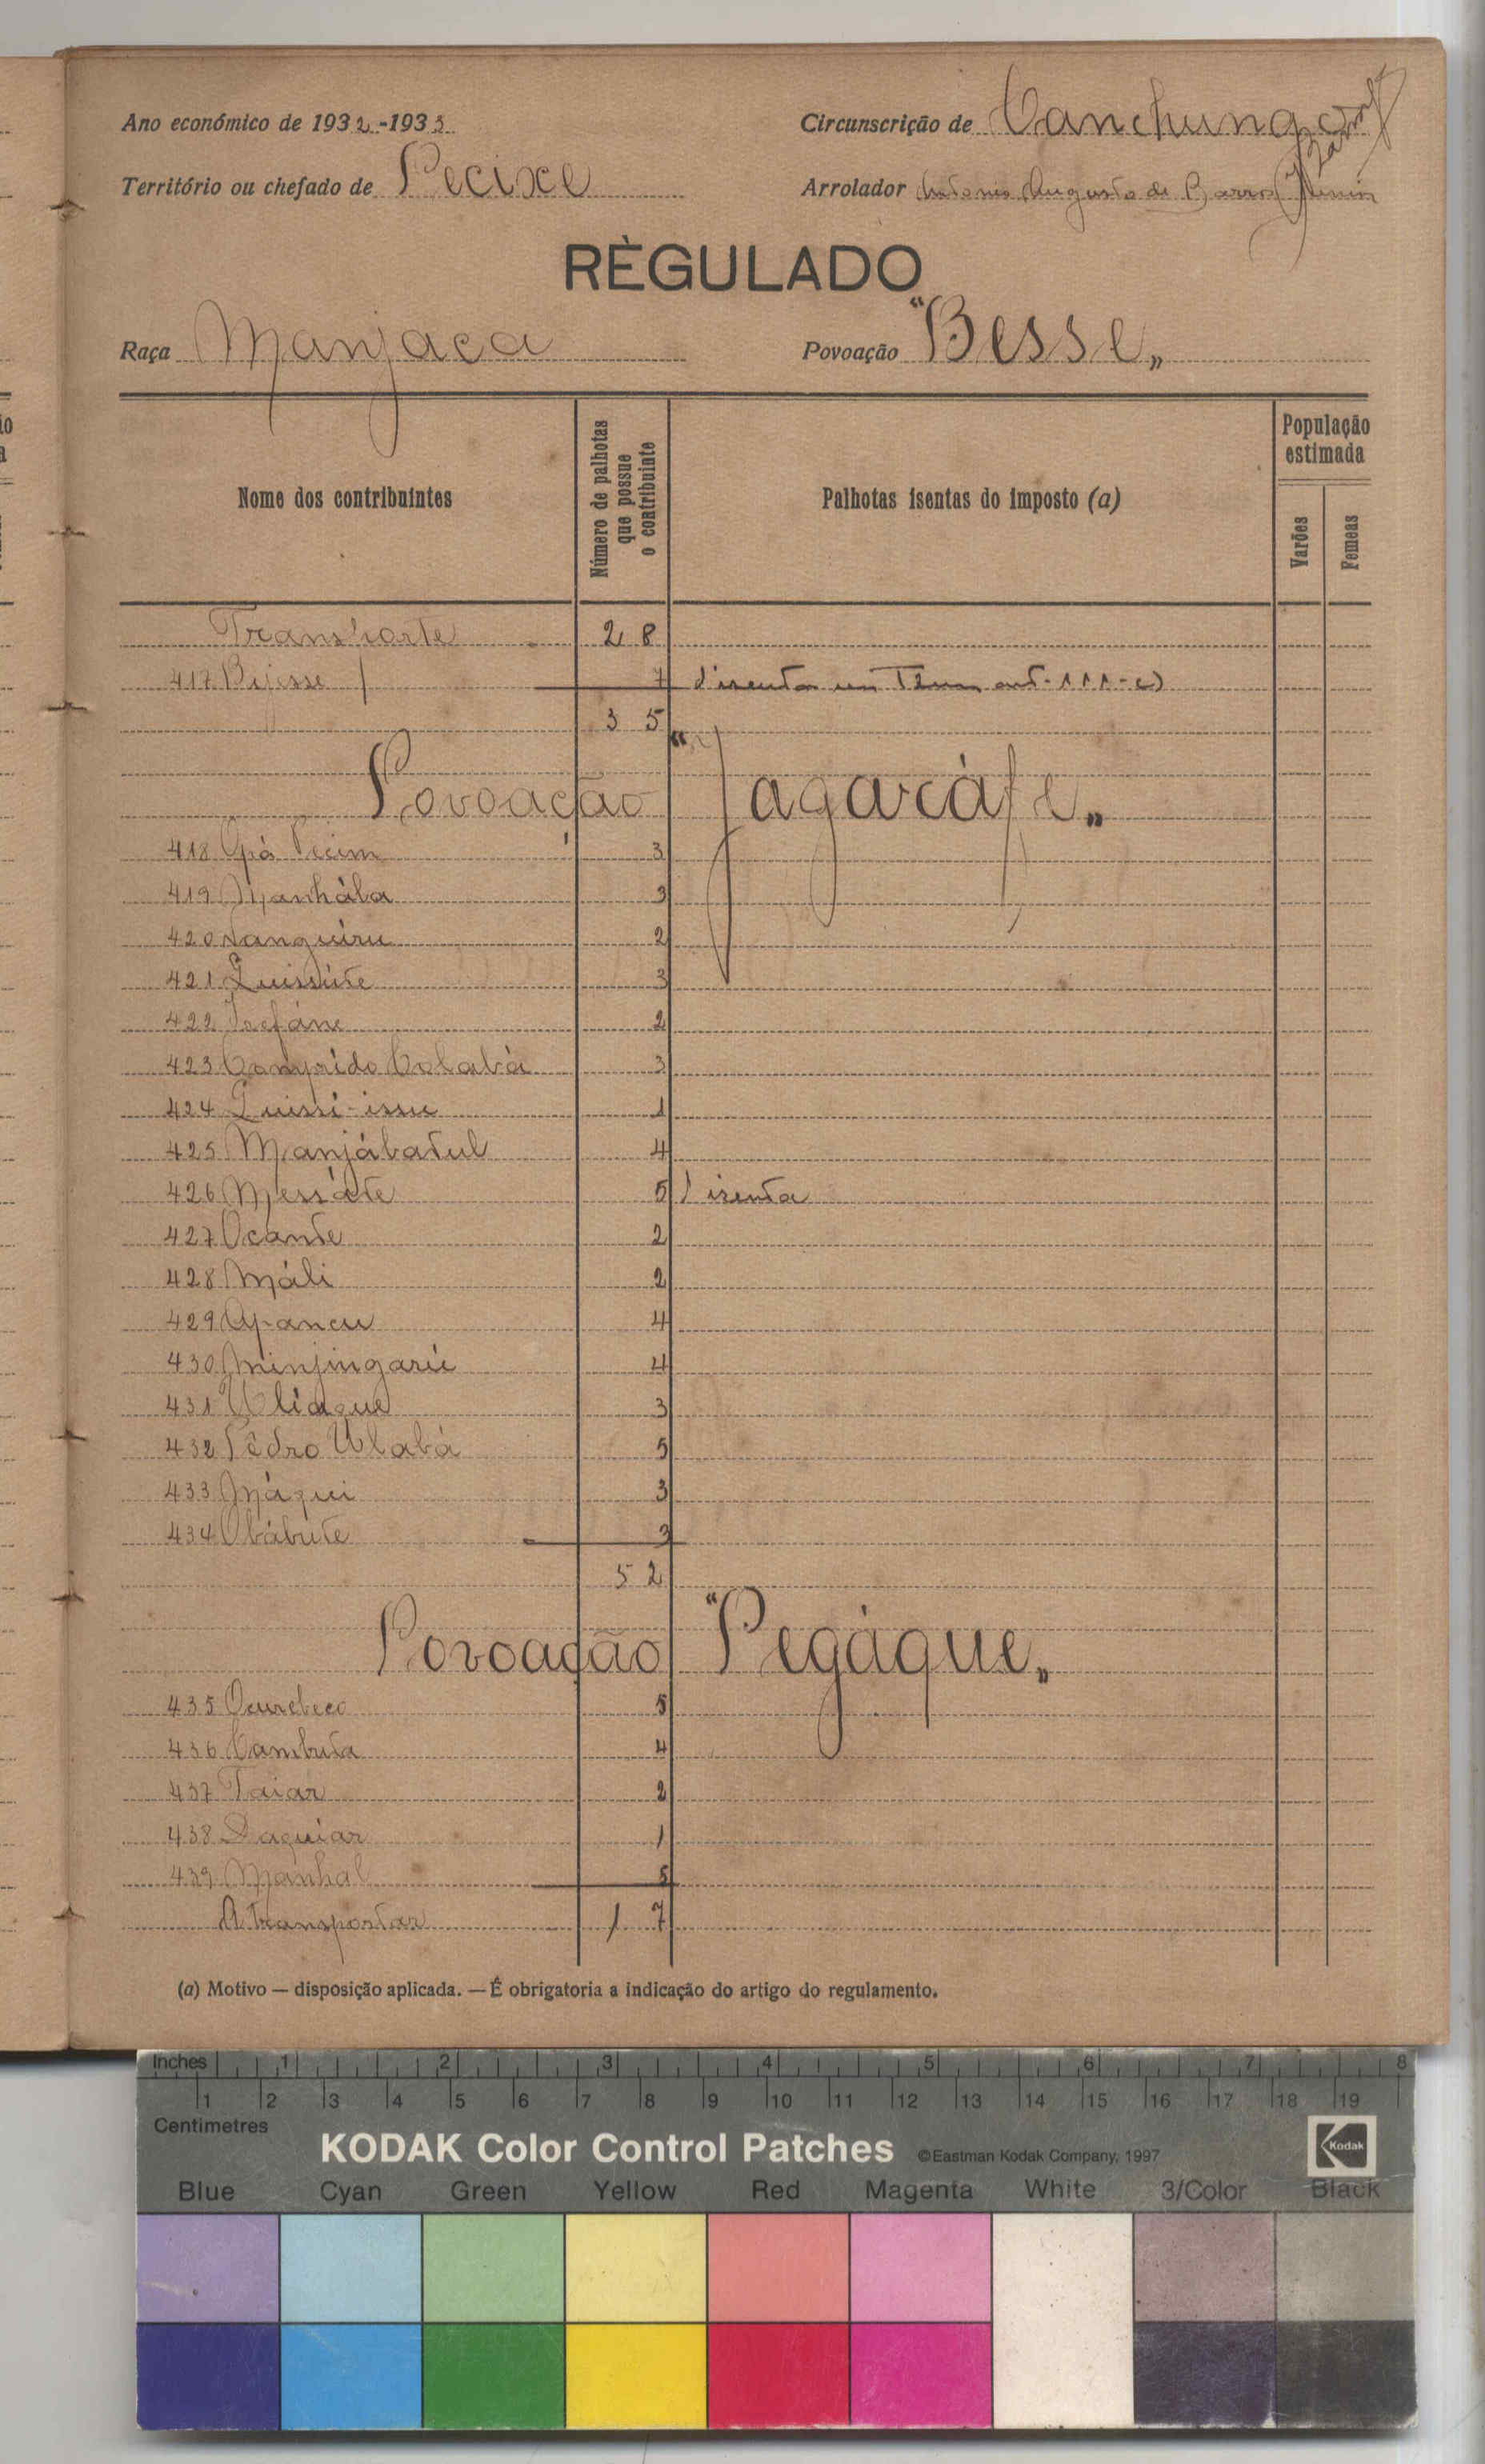 Ano económico de 1932-1933
Circunscrição de Canchungo
Território ou chefado de Pecixe
Arrolador Antonio Augusto de Barros
RÈGULADO
Raça Manjaca
Povoação "Besse„
Nome dos contribuintes
Número de palhotas que possue o contribuinte
Palhotas isentas do imposto (a)
População estimada
Varões
Femeas
Transporte 28
417 7
35
Povoação "Jagaráfe„
418 3
419 Manhába 3
420 Nanguiru 2
421 3
422 2
423 Comprido Colabá 3
424 1
425 Manjábatul 4
426 5 1 isenta
427 Ocante 2
428 Máli 2
429 Apancu 4
430 Minjingarú 4
431 3
432 Pêdro Ulabá 5
433 Máqui 3
434 Obábúte 3
52
Povoação "Pegáque„
435 5
436 Cambuta 4
437 Taiar 2
438 Daquiar 1
439 Manhal 5
A transportar 17
(a) Motivo — disposição aplicada. — É obrigatoria a indicação do artigo do regulamento.
Inches 1 2 3 4 5 6 7 8
1 2 3 4 5 6 7 8 9 10 11 12 13 14 15 16 17 18 19
Centimetres
KODAK Color Control Patches ©Eastman Kodak Company, 1997 Kodak
Blue Cyan Green Yellow Red Magenta White 3/Color Black